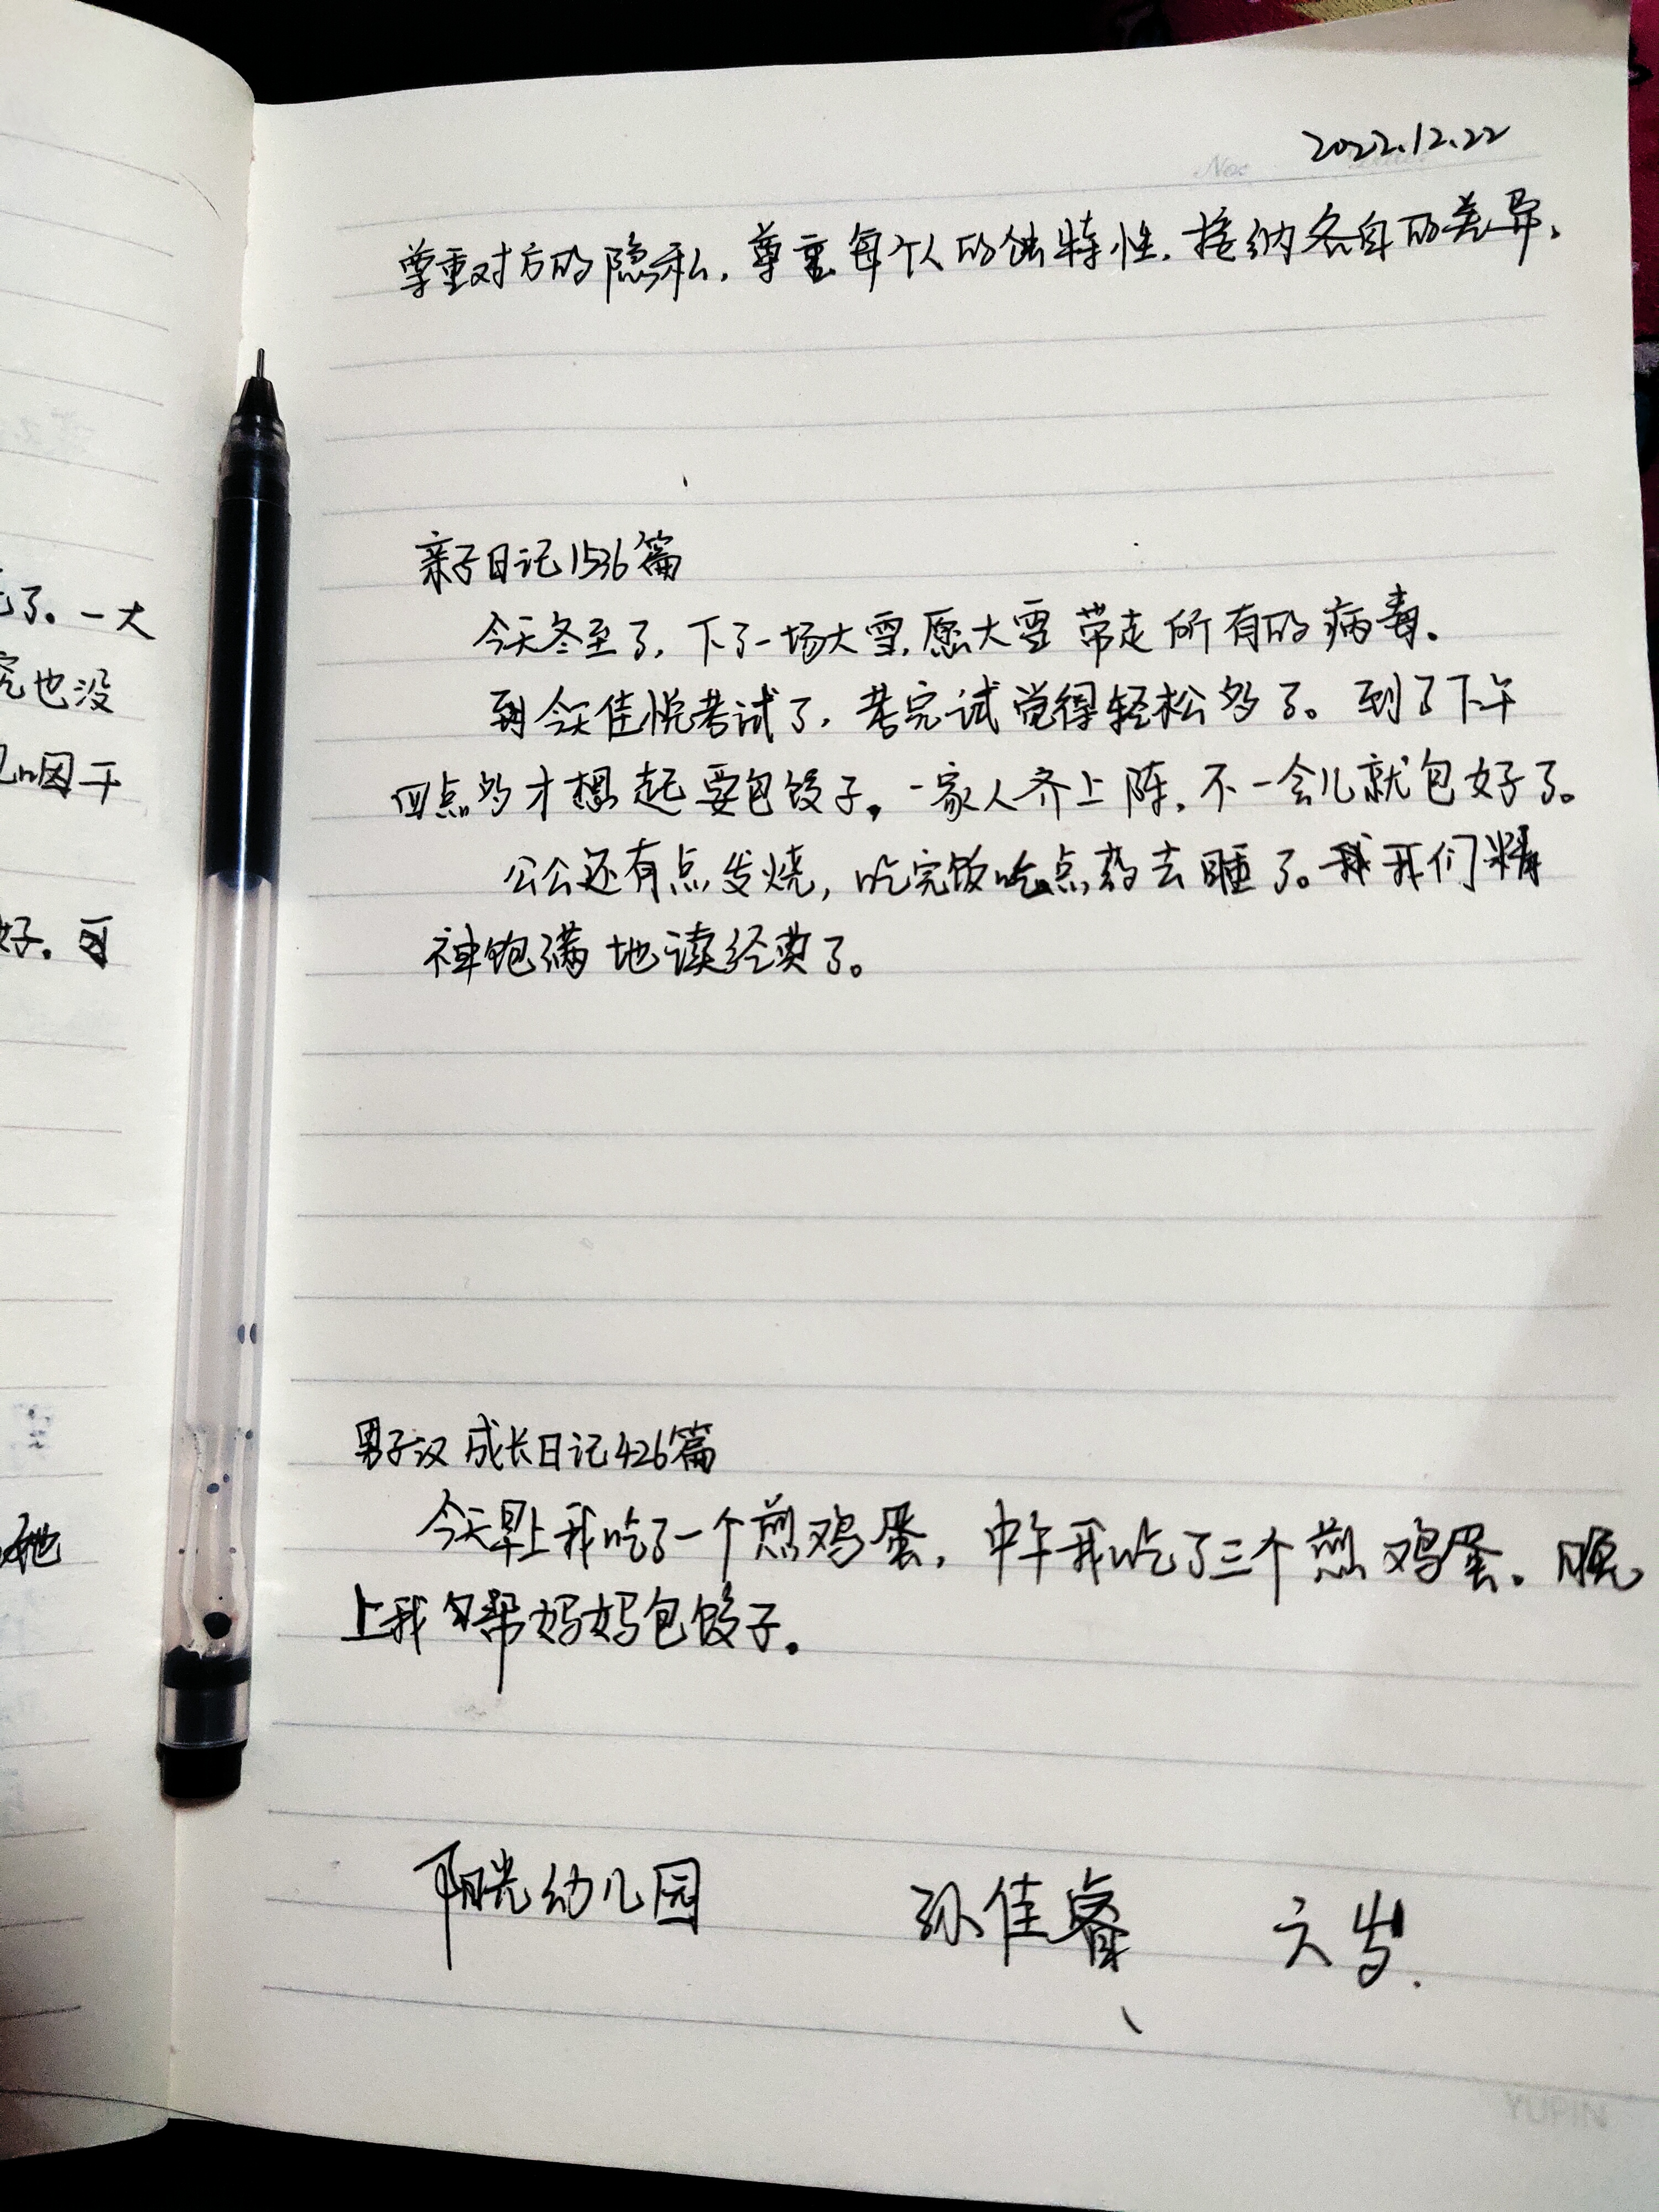 了。一大
究也没
咽干
好。可
她
No:
2022.12.22
尊重对方的隐私，尊重每个人的独特性，接纳各自的差异。
亲子日记1536篇
今天冬至了，下了一场大雪，愿大雪带走所有的病毒。
到今天佳悦考试了，考完试觉得轻松多了。到了下午
四点多才想起要包饺子。一家人齐上阵，不一会儿就包好了。
公公还有点发烧，吃完饭吃点药去睡了。我们精
神饱满地读经典了。
男子汉成长日记426篇
今天早上我吃了一个煎鸡蛋，中午我吃了三个煎鸡蛋。晚
上我帮妈妈包饺子。
阳光幼儿园 孙佳睿 六岁.
YUPIN